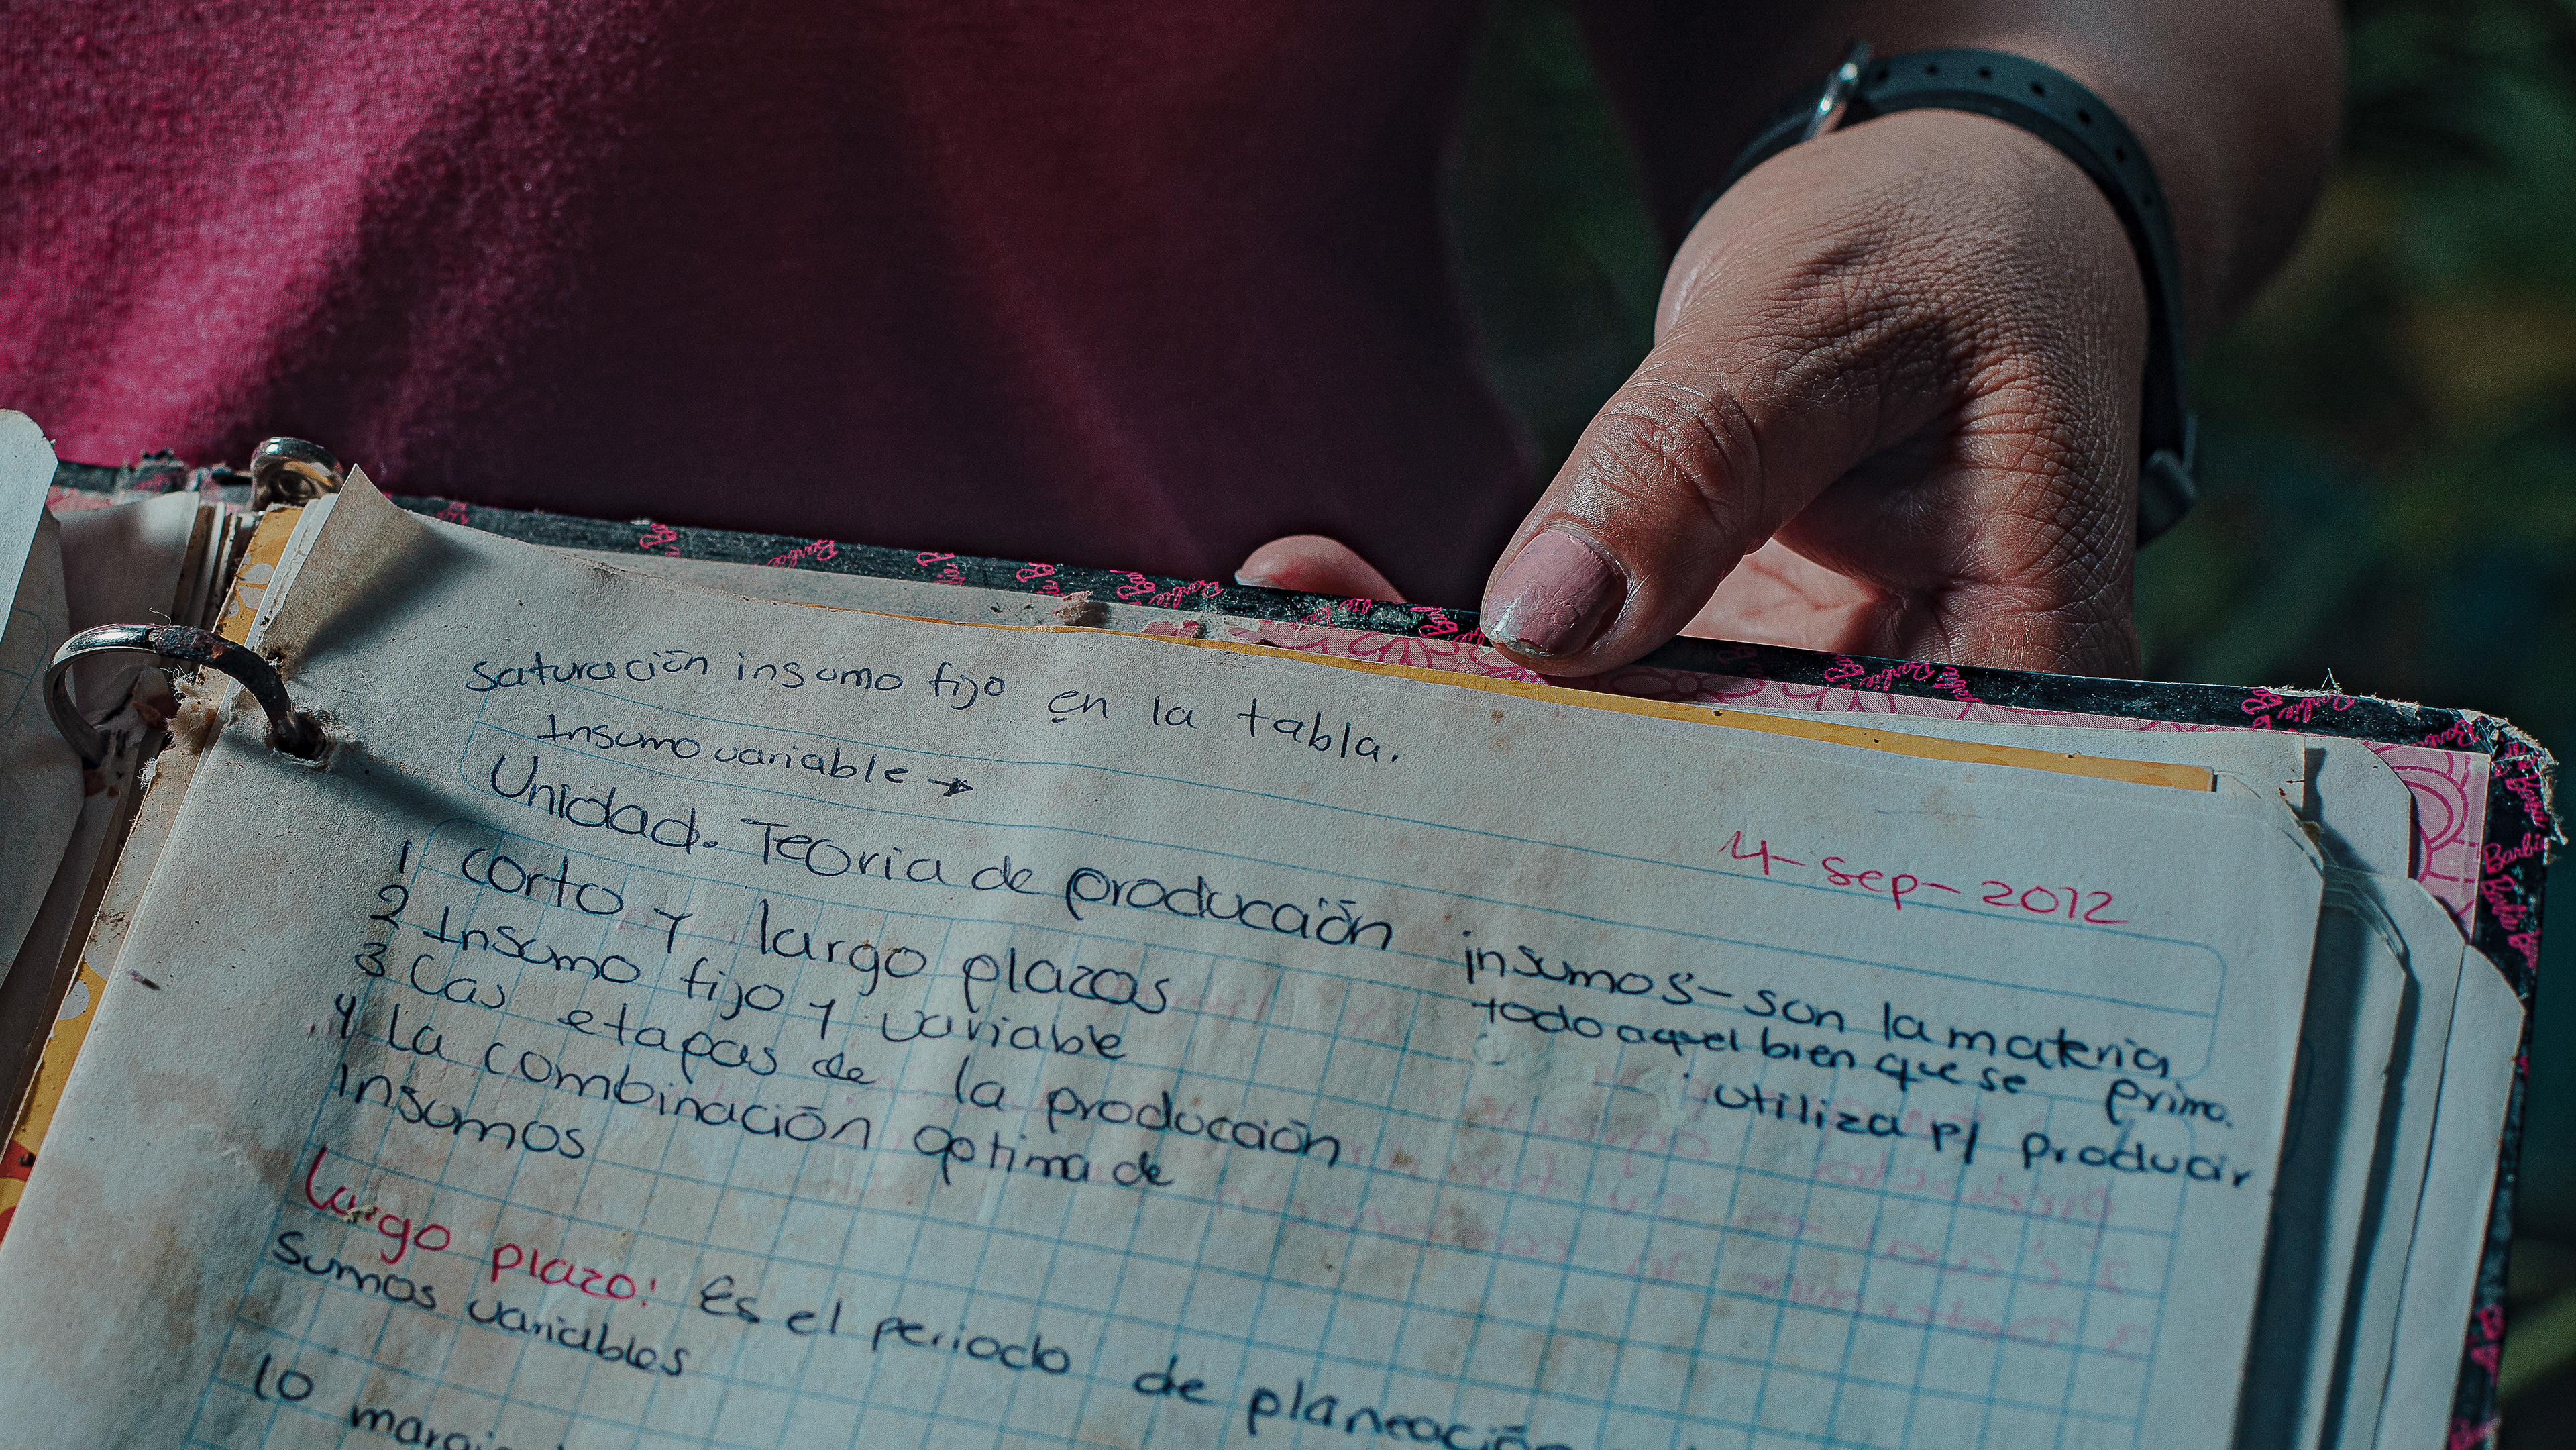 saturación insumo fijo en la tabla.
Insumo variable →
4-Sep-2012
Unidad. Teoria de producción
1 corto y largo plazos
2 Insumo fijo y variable
3 Las etapas de la producción
4 La combinación optima de
insumos
insumos- son la materia prima.
todo aquel bien que se
utiliza p/ producir
Largo plazo: Es el periodo de planeación
sumos variables
lo
Barbie